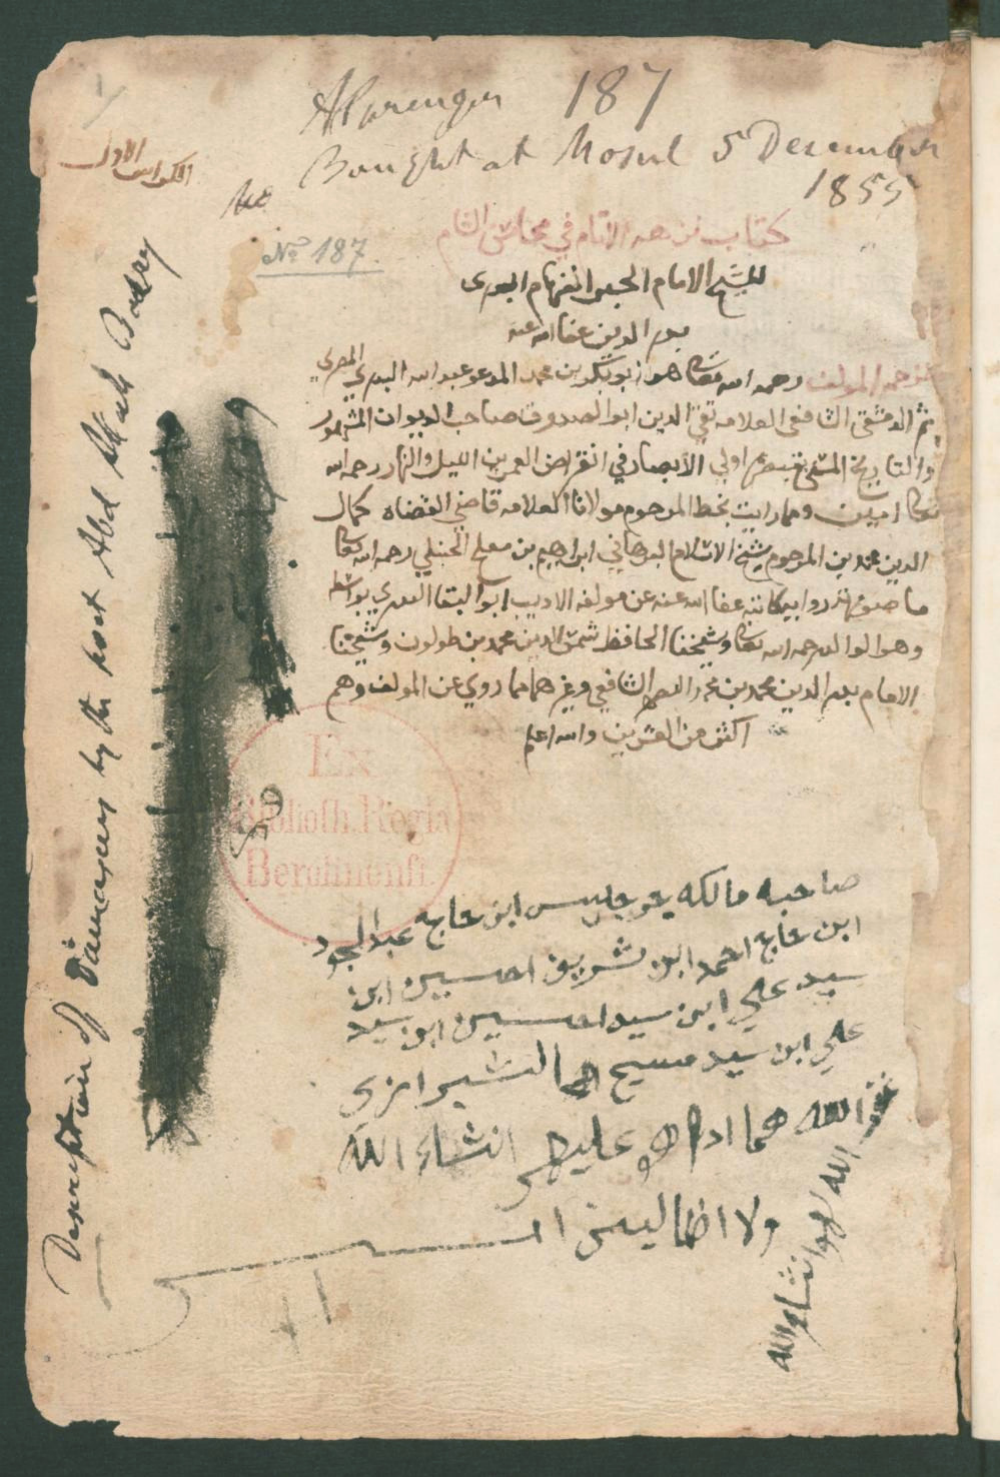 ASprenger 187
Bought at Mosul 5 December
1855
الكراس الاول
No 187.
كتاب نزهه الانام في محاسن الشام
للشيخ الامام الحبر الفهام البدرى
بدر الدين عفا الله عنه
ترجمه المولف رحمه الله تعالى هو ابو بكر بن محمد المدعو عبد الله البدري المصري
ثم الدمشقي الشافعي العلامه تقي الدين ابو الصدوق صاحب الديوان المشهور
والتاريخ المسمى تبصره اولي الابصار في انقراض العمرين الليل والنهار رحمه الله
تعالى امين ومما رايت بخط المرحوم مولانا العلامه قاضي القضاه كمال
الدين محمد بن المرحوم شيخ الاسلام البرهاني ابراهيم بن مفلح الحنبلي رحمه الله تعالى
ما صورته يرويه كاتبه عفا الله عنه عن مولفه الاديب ابو البقا البدري بواسطه
وهو الوالد رحمه الله تعالى وشيخنا الحافظ شمس الدين محمد بن طولون وشيخنا
الامام بدر الدين محمد بن محمد الشافعي وغيرهما مما روي عن المولف وهم
اكثر من العشرين والله اعلم
Description of Damascus by the poet Abd Allah Badry
Ex
Biblioth. Regia
Berolinensi.
صاحبه مالكه ابن حاج عبد الجود
ابن حاج احمد ابن شريف احسين ابن
سيد علي ابن سيد احسين ابن سيد
علي ابن سيد مسيح الشيرازي
الله عليهم انشاء الله
ولا الظالين
الله انشاء الله